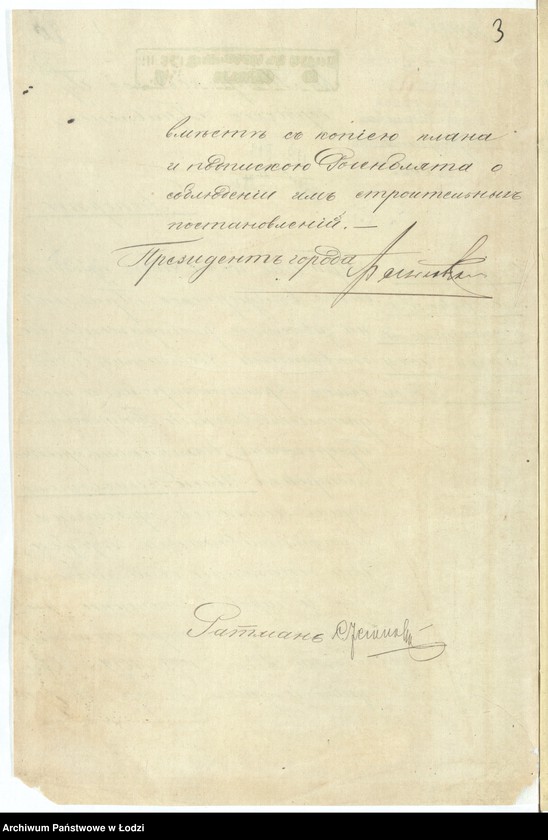 3
вмѣстѣ съ копіею плана
и подпискою Фогнблята о
соблюденіи имъ строительныхъ
постановленій. —
Президентъ города
Ратманъ
Archiwum Państwowe w Łodzi